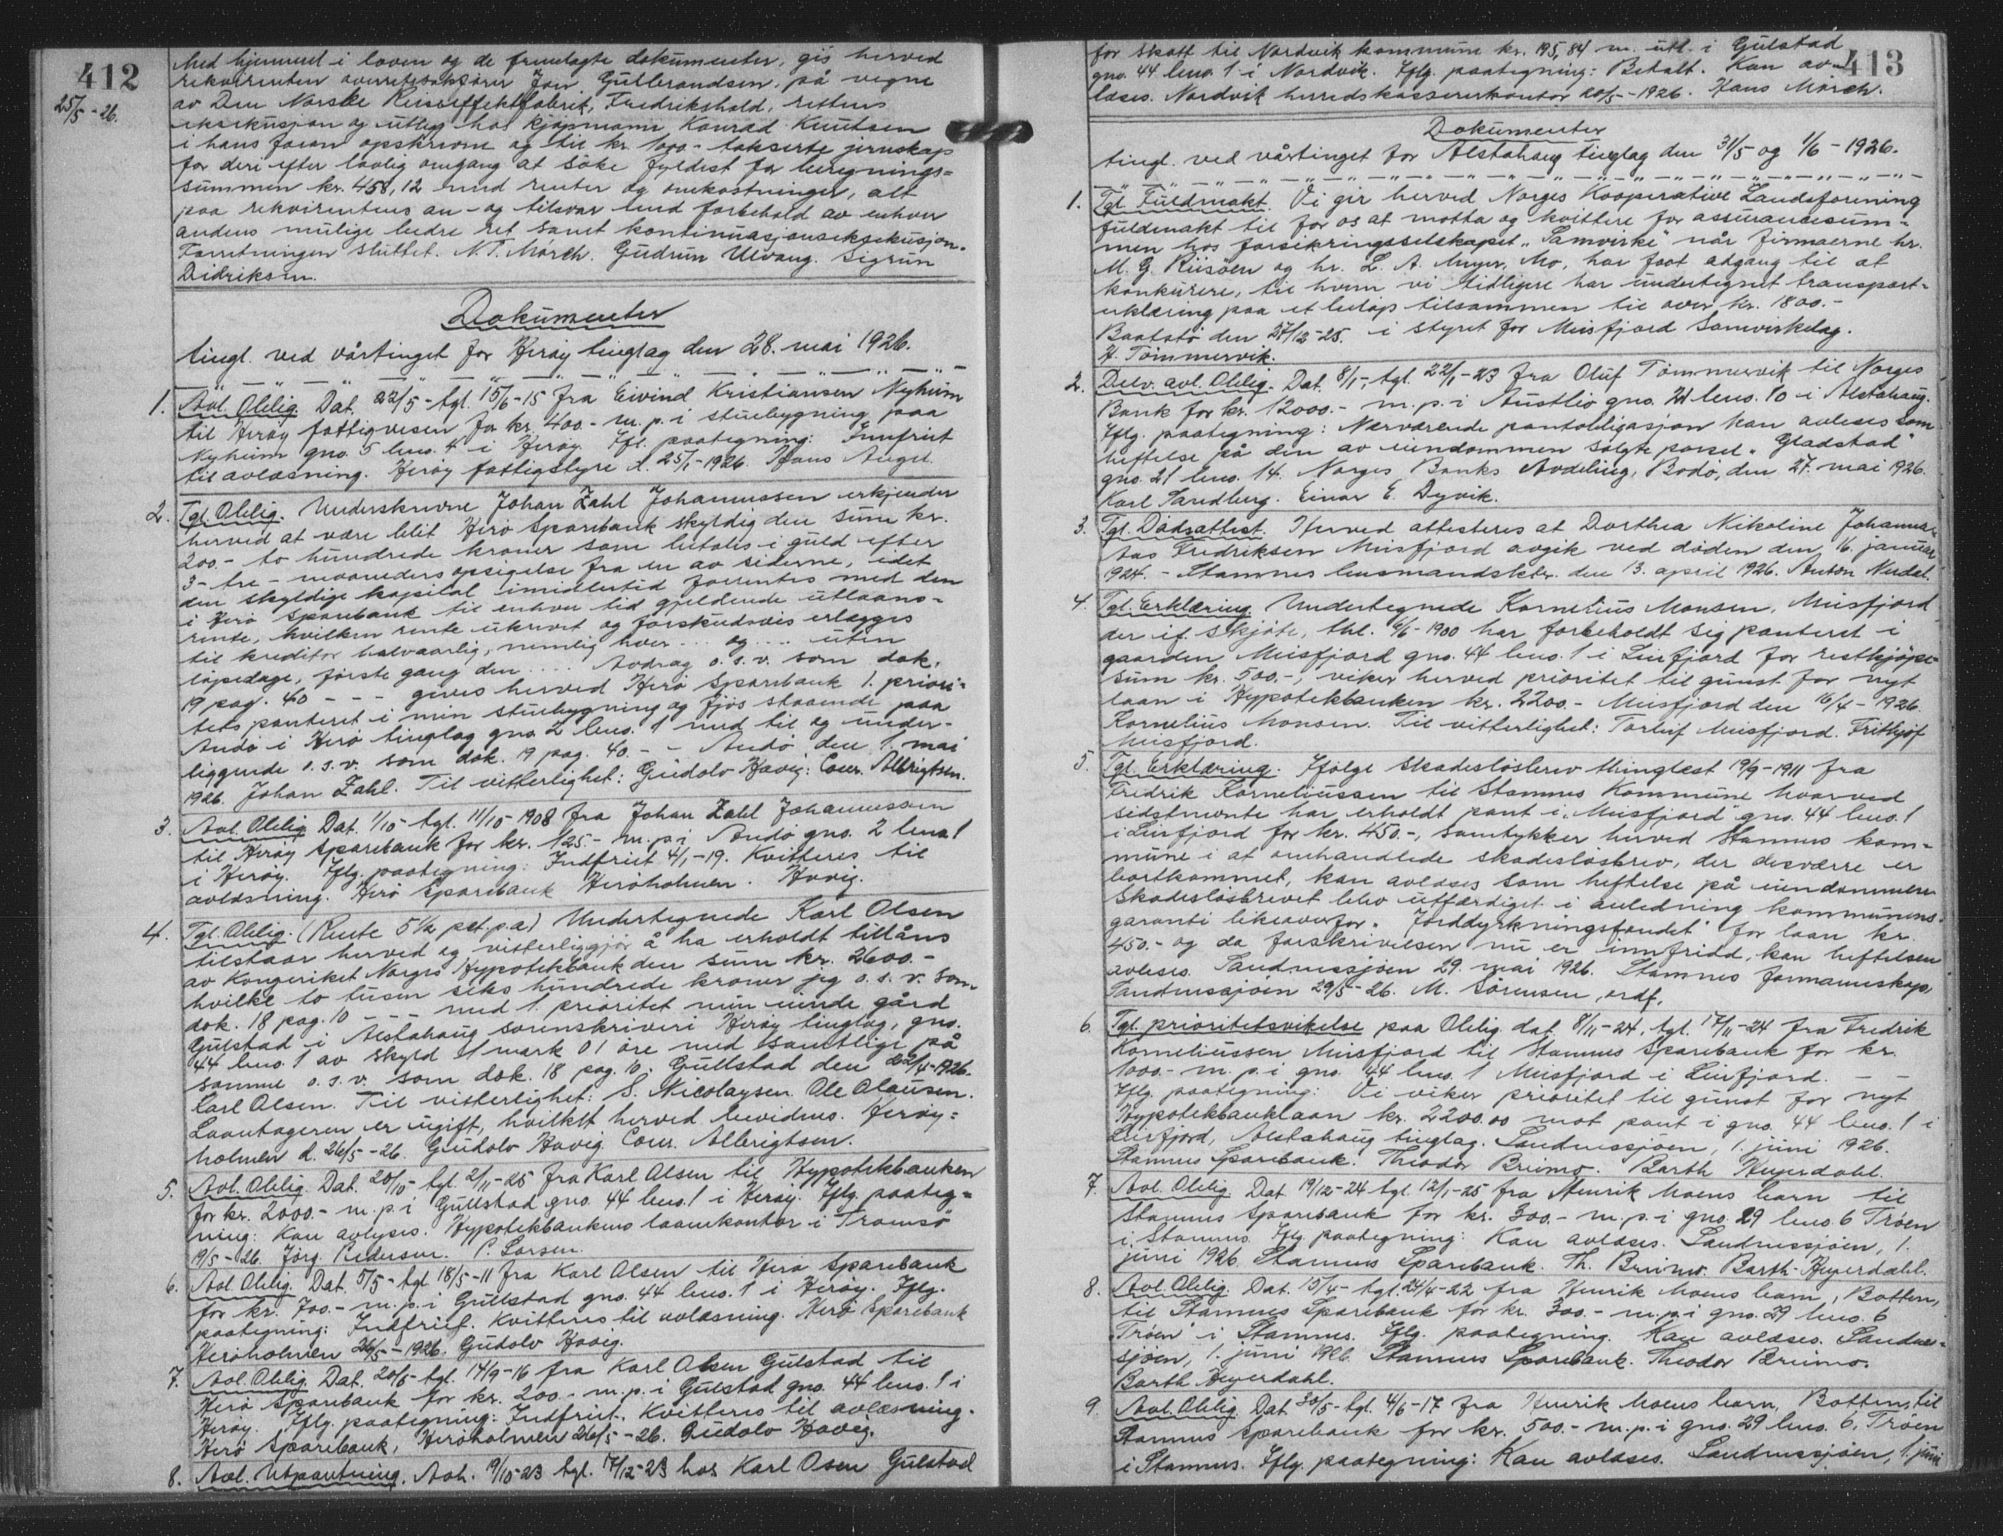 412
25/5-26.
Med hjemmel i loven og de fremlagte dokumenter, gis herved
rekvirenten overretssakfører Gulbrandsen, på vegne
av Den Norske Reiseeffektfabrik, Fredrikshald, rettens
eksekusjon og utlæg hos kjøpmann Konrad Knutsen
i hans foran opskrevne og til kr. 1000.- takserte jernskap
for deri efter lovlig omgang at søke fyldest for beregnings=
summen kr. 458,12 med renter og omkostninger, alt
paa rekvirentens an- og tilsvar med forbehold av enhver
andens mulige bedre ret samt kontinuasjonseksekusjon.
Forretningen sluttet. N. T. Mørch. Gudrun Ulvang. Sigrun
Didriksen.
Dokumenter
tingl. ved vårtinget for Herøy tinglag den 28. mai 1926.
1. Avl. Oblig. Dat. 22/5- tgl. 15/6-15 fra Eivind Kristiansen Nyheim
til Herøy fattigvesen for kr. 400.- m. p. i stuebygning paa
Nyheim gno. 5 bno. 4 i Herøy. Ifl. paategning: Innfriet
til avlæsning. Herøy fattigstyre d. 25/1-1926. Hans Angel.
2. Tgl. Oblig. Underskrevne Johan Zahl Johannessen erkjender
herved at være blit Herø Sparebank skyldig den sum kr.
200.- to hundrede kroner som betales i guld efter
3- tre- maaneders opsigelse fra en av siderne, idet
den skyldige kapital imidlertid forrentes med den
i Herø Sparebank til enhver tid gjeldende utlaans=
rente, hvilken rente ukrevet og forskudsvis erlægges
til kreditor halvaarlig, nemlig hver ... og .... uten
løpedage, første gang den .... Avdrag o.s.v. som dok.
19 pag. 40 - - - gives herved Herø Sparebank 1. priori=
tets panteret i min stuebygning og fjøs staaende paa
Andø i Herø tinglag gno. 2 bno. 1 med til og under-
liggende o.s.v. som dok. 19 pag. 40. - - Andø den 1. mai
1926. Johan Zahl. Til vitterlighet: Gudolv Havig. Conr. Albrigtsen.
3. Avl. Oblig. Dat. 1/10- tgl. 11/10-1908 fra Johan Zahl Johannessen
til Herøy Sparebank for kr. 125.- m. p. i Andø gno. 2 bno. 1
i Herøy. Iflg. paategning: Indfriet 4/1-19. Kvitteres til
avlæsning. Herø Sparebank Herøholmen. Havig.
4. Tgl. Oblig. (Rente 5 1/2 pct. p.a) Undertegnede Karl Olsen
tilstaar herved og vitterliggjør å ha erholdt tillåns
av Kongeriket Norges Hypotekbank den sum kr. 2600.-
hvilke to tusen seks hundrede kroner jeg o.s.v. som
dok. 18 pag. 10 - - - med 1. prioritet min eiende gård
Gulstad i Alstahaug sorenskriveri Herøy tinglag, gno.
44 bno. 1 av skyld 1 mark 01 øre med samtlige på
samme o.s.v. som dok. 18 pag. 10. Gullstad den 22/4-1926.
Carl Olsen. Til vitterlighet: S. Nicolaysen. Ole Olausen.
Laantageren er ugift, hvilket herved bevidnes. Herøy=
holmen d. 26/5-26. Gudolv Havig. Conr. Albrigtsen.
5. Avl. Oblig. Dat. 20/10- tgl. 2/11-25 fra Karl Olsen til Hypotekbanken
for kr. 2000.- m. p. i Gullstad gno. 44 bno. 1 i Herøy. Iflg. paateg=
ning: Kan avlyses. Hypotekbankens laanekontor i Tromsø
19/5-26. Jørg. Pedersen. P. Larsen.
6. Avl. Oblig. Dat. 5/5- tgl. 18/5-11 fra Karl Olsen til Herø Sparebank
for kr. 700.- m. p. i Gullstad gno. 44 bno. 1 i Herøy. Iflg.
paategning: Indfriet. Kvitteres til avlæsning. Herø Sparebank
Herøholmen 26/5-1926. Gudolv Havig.
7. Avl. Oblig. Dat. 20/5- tgl. 14/9-16 fra Karl Olsen Gulstad til
Herø Sparebank for kr. 200.- m. p. i Gulstad gno. 44 bno. 1 i
Herøy. Iflg. paategning: Indfriet. Kvitteres til avlæsning.
Herø Sparebank, Herøholmen 26/5-26. Gudolv Havig.
8. Avl. Utpantning. Avh. 9/10-23 tgl. 17/12-23 hos Karl Osen Gulstad
413
for skatt til Nordvik kommune kr. 195,84 m. utl. i Gulstad
gno. 44 bno. 1 i Nordvik. Iflg. paategning: Betalt. Kan av-
læses. Nordvik herredskassererkontor 20/5-1926. Hans Mørch.
Dokumenter
tingl. ved vårtinget for Alstahaug tinglag den 31/5 og 1/6-1926.
1. Tgl. Fuldmakt. Vi gir herved Norges Kooperative Landsforening
fuldmakt til for os at motta og kvittere for assurancesum=
men hos forsikringsselskapet "Samvirke" når firmaerne hr.
M. G. Riisøen og hr. L. A. Meyer, Mo, har faat adgang til at
konkurere, til hvem vi tidligere har undertegnet transport=
erklæring paa et beløp tilsammen til over kr. 1800.-
Baatstø den 27/12-25. i styret for Meisfjord Samvirkelag.
H. Tømmervik.
2. Delv. avl. Oblig. Dat. 8/1-, tgl. 22/1-23 fra Oluf Tømmervik til Norges
Bank for kr. 12000.- m. p. i Austbø gno. 21 bno. 10 i Alstahaug.
Iflg. paategning: Nærværende pantobligasjon kan avleses som
heftelse på den av eiendommen solgte parsel "Gladstad"
gno. 21 bno. 14. Norges Banks Avdeling, Bodø, den 27. mai 1926.
Karl Sandberg. Einar E. Dyvik.
3. Tgl. Dødsattest. Herved attesteres at Dorthea Nikoline Johanna
Fredriksen Meisfjord avgik ved døden den 16. januar
1924. - Stamnes lensmandsktr. den 13. april 1926. Anton Nerdal.
4. Tgl. Erklæring. Undertegnede Kornelius Monsen, Meisfjord
der if. skjøte, thl. 6/6-1900 har forbeholdt sig panteret i
gaarden Meisfjord gno. 44 bno. 1 i Leirfjord for restkjøpe-
sum kr. 500.-, viker herved prioritet til gunst for nyt
laan i Hypotekbanken kr. 2200.- Meisfjord den 16/4-1926.
Kornelius Monsen. Til vitterlighet: Torleif Meisfjord. Frithjof
Meisfjord.
5. Tgl. Erklæring. Ifølge skadesløsbrev thinglæst 19/9-1911 fra
Fredrik Korneliussen til Stamnes Kommune hvorved
sidstnevnte har erholdt pant i "Meisfjord" gno. 44 bno. 1
i Leirfjord for kr. 450.-, samtykker herved Stamnes kom=
mune i at omhandlede skadesløsbrev, der desværre er
bortkommet, kan avlæses som heftelse på eiendommen
Skadesløsbrevet blev utfærdiget i anledning kommunens
garanti likeoverfor "Jorddyrkningsfondet" for laan kr.
450.- og da forskrivelsen nu er innfridd, kan heftelsen
avleses. Sandnessjøen 29. mai 1926. Stamnes formannskap,
Sandnessjøen 29/5-26. M. Sørensen, ordf.
6. Tgl. prioritetsvikelse paa Oblig. dat. 8/11-24, tgl. 17/11-24 fra Fredrik
Korneliussen Meisfjord til Stamnes Sparebank for kr.
1000.- m. p. i gno. 44 bno. 1 Meisfjord i Leirfjord. - -
Iflg. paategning: Vi viker prioritet til gunst for nyt
Hypotekbanklaan kr. 2200.00 mot pant i gno. 44 bno. 1 i
Leirfjord, Alstahaug tinglag. Sandnessjøen, 1. juni 1926.
Stamnes Sparebank. Theodor Breimo. Barth Heyerdahl.
7. Avl. Oblig. Dat. 19/12-24 tgl. 12/1-25 fra Henrik Moens barn til
Stamnes Sparebank for kr. 300.- m. p. i gno. 29 bno. 6 Trøen
i Stamnes. Iflg. paategning: Kan avlæses. Sandnessjøen, 1.
juni 1926. Stamnes Sparebank. Th. Breimo. Barth-Heyerdahl.
8. Avl. Oblig. Dat. 15/4- tgl. 24/4-22 fra Henrik Moens barn, Botten,
til Stamnes Sparebank for kr. 300.- m. p. i gno. 29 bno. 6
"Trøen" i Stamnes. Iflg. paategning. Kan avlæses. Sandnes-
sjøen, 1. juni 1926. Stamnes Sparebank. Theodor Breimo.
Barth Heyerdahl.
9. Avl. Oblig. Dat. 30/5- tgl. 4/6-17 fra Henrik Moens barn, Botten, til
Stamnes Sparebank for kr. 500.- m. p. i gno. 29 bno. 6, Trøen
i Stamnes. Iflg. paategning: Kan avlæses. Sandnessjøen, 1. juni